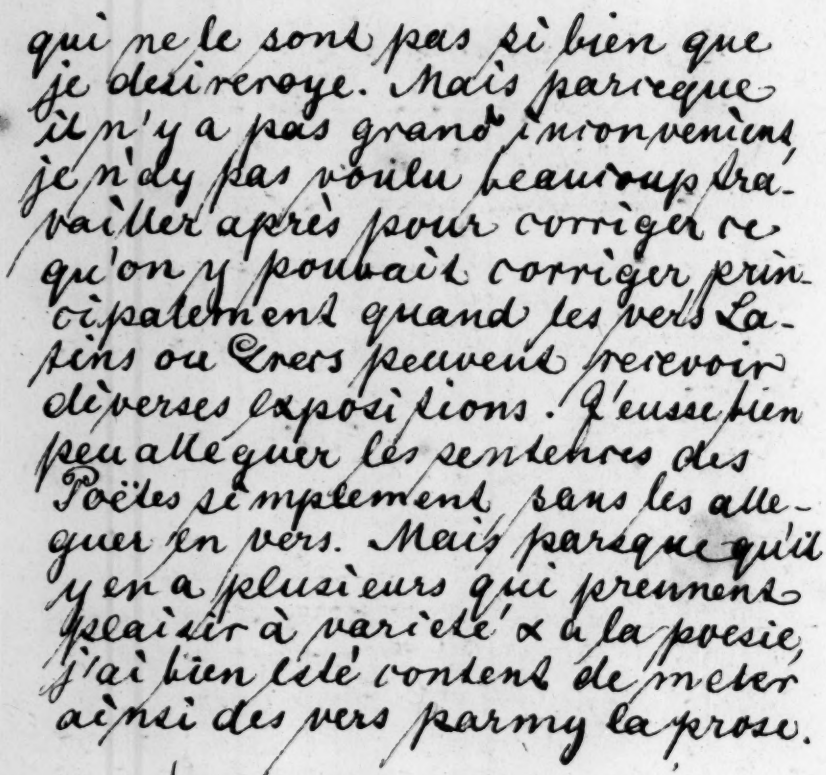 qui ne le sont pas si bien que
je desireroye. Mais parceque
il n'y a pas grand inconvenient,
je n'ay pas voulu beaucoup tra-
vailler après pour corriger ce
qu'on y pouvait corriger, prin-
cipalement quand les vers La-
tins ou Grecs peuvent recevoir
diverses expositions. J'eusse bien
peu alleguer les sentences des
Poëtes simplement, sans les alle-
guer en vers. Mais parsque qu'il
y en a plusieurs qui prennent
plaisir à varieté & a la poesie,
j'ai bien esté content de meter
ainsi des vers parmy la prose.